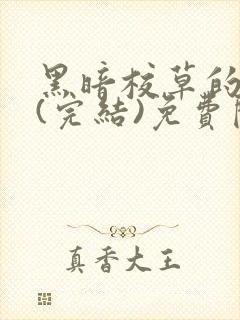 黑暗校草的
(完結)免費
真香大王